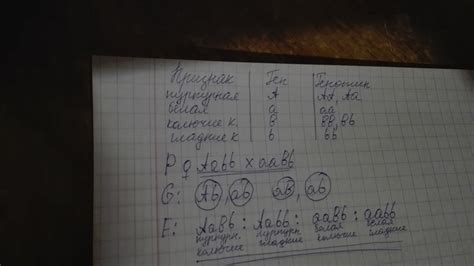 Признак Ген Генотип
пурпурная А АА, Аа
белая а аа
колючие к. В ВВ, Вb
гладкие к b bb
P ♀ Aabb x aaBb
G: Ab, ab aB, ab
F: AaBb : Aabb : aaBb : aabb
пурпурн. пурпурн. белая белая
колючие гладкие колючие гладкие